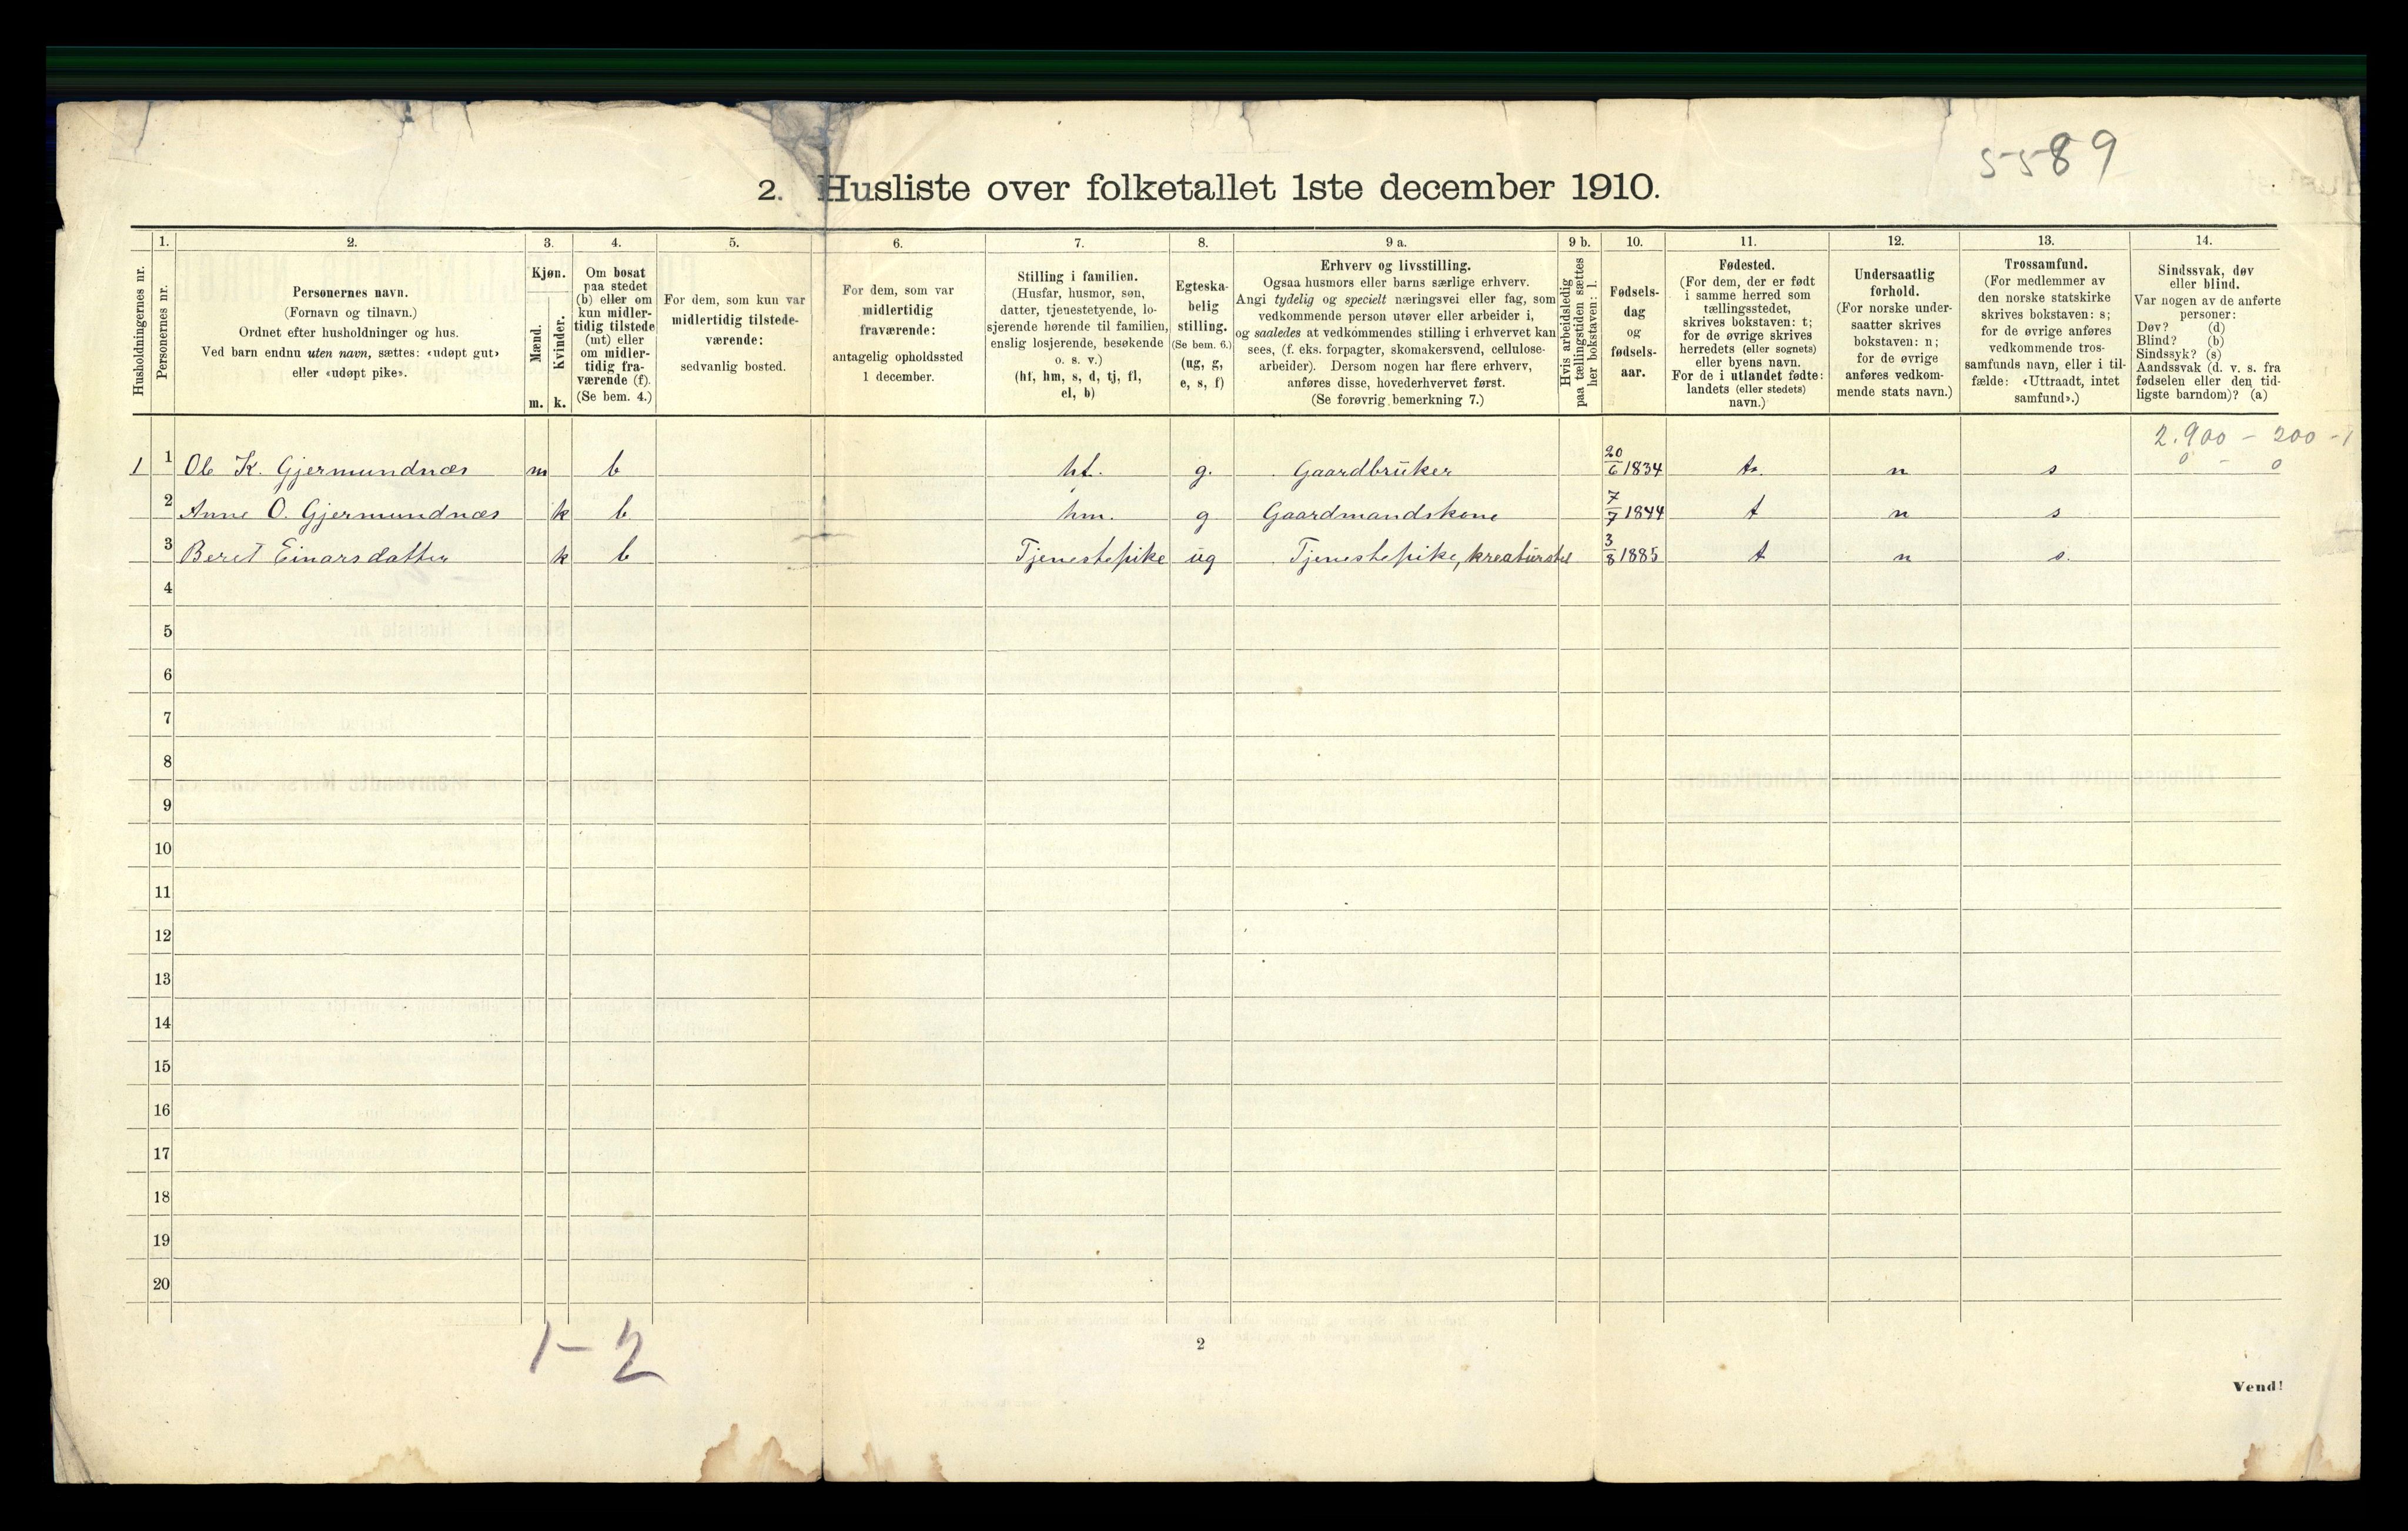 5589
2. Husliste over folketallet 1ste december 1910.
1. 2. 3. 4. 5. 6. 7. 8. 9 a. 9 b. 10. 11. 12. 13. 14.
Husholdningernes nr.
Personernes nr.
Personernes navn.
(Fornavn og tilnavn.)
Ordnet efter husholdninger og hus.
Ved barn endnu uten navn, sættes: «udøpt gut»
eller «udøpt pike».
Kjøn.
Mænd.
Kvinder.
m. k.
Om bosat
paa stedet
(b) eller om
kun midler-
tidig tilstede
(mt) eller
om midler-
tidig fra-
værende (f).
(Se bem. 4.)
For dem, som kun var
midlertidig tilstede-
værende:
sedvanlig bosted.
For dem, som var
midlertidig
fraværende:
antagelig opholdssted
1 december.
Stilling i familien.
(Husfar, husmor, søn,
datter, tjenestetyende, lo-
sjerende hørende til familien,
enslig losjerende, besøkende
o. s. v.)
(hf, hm, s, d, tj, fl,
el, b)
Egteska-
belig
stilling.
(Se bem. 6.)
(ug, g,
e, s, f)
Erhverv og livsstilling.
Ogsaa husmors eller barns særlige erhverv.
Angi tydelig og specielt næringsvei eller fag, som
vedkommende person utøver eller arbeider i,
og saaledes at vedkommendes stilling i erhvervet kan
sees, (f. eks. forpagter, skomakersvend, cellulose-
arbeider). Dersom nogen har flere erhverv,
anføres disse, hovederhvervet først.
(Se forøvrig bemerkning 7.)
Hvis arbeidsledig
paa tællingstiden sættes
her bokstaven: l.
Fødsels-
dag
og
fødsels-
aar.
Fødested.
(For dem, der er født
i samme herred som
tællingsstedet,
skrives bokstaven: t;
for de øvrige skrives
herredets (eller sognets)
eller byens navn.
For de i utlandet fødte:
landets (eller stedets)
navn.)
Undersaatlig
forhold.
(For norske under-
saatter skrives
bokstaven: n;
for de øvrige
anføres vedkom-
mende stats navn.)
Trossamfund.
(For medlemmer av
den norske statskirke
skrives bokstaven: s;
for de øvrige anføres
vedkommende tros-
samfunds navn, eller i til-
fælde: «Uttraadt, intet
samfund».)
Sindssvak, døv
eller blind.
Var nogen av de anførte
personer:
Døv? (d)
Blind? (b)
Sindssyk? (s)
Aandssvak (d. v. s. fra
fødselen eller den tid-
ligste barndom)? (a)
2.900 - 200 - 1
0 - 0
1 1 Ole K. Gjermundnæs m b hf. g. Gaardbruker 20/6 1834 t. n s
2 Anne O. Gjermundnæs k b hm. g Gaardmandskone 7/7 1844 t n s
3 Beret Einarsdatter k b Tjenestepike ug Tjenestepike, kreaturstel 3/8 1885 t n s.
4
5
6
7
8
9
10
11
12
13
14
15
16
17
18
19
20
1-2
2
Vend!